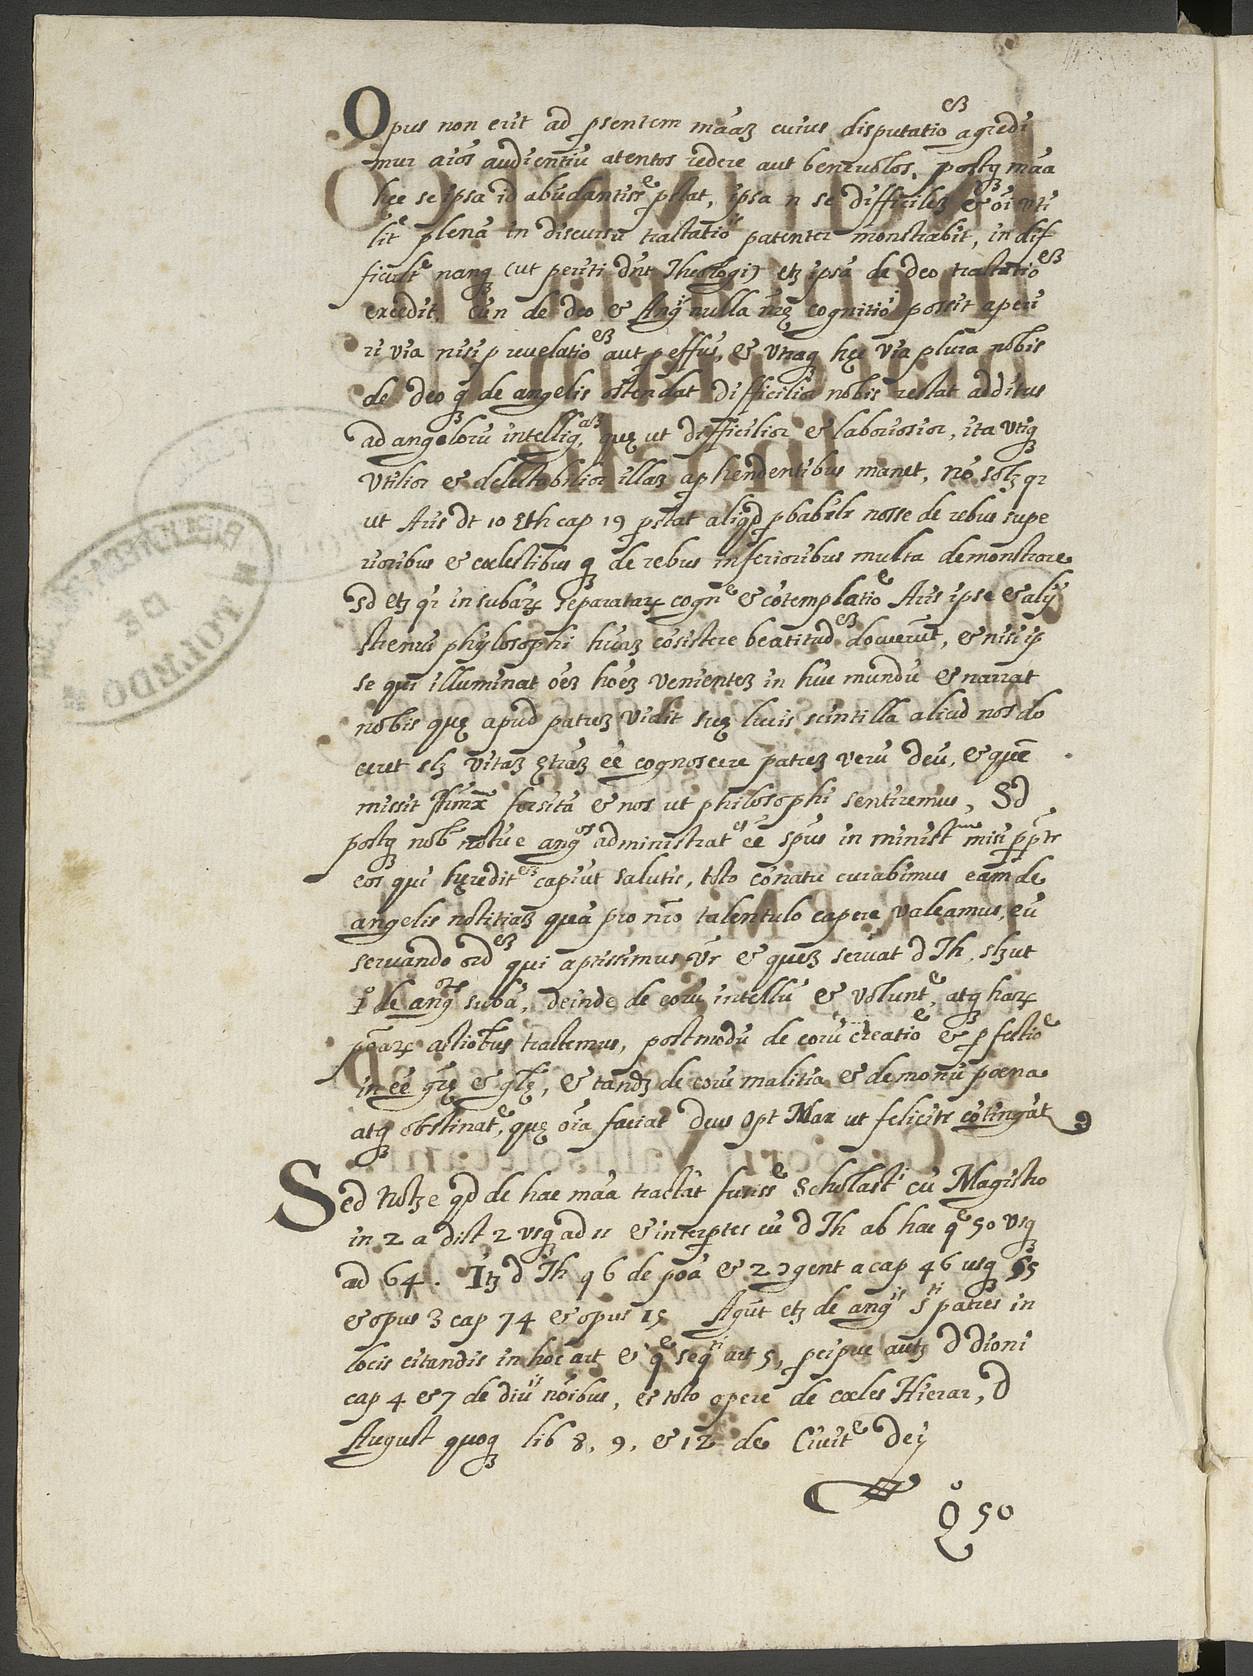 Opus non erit ad p̃sentem mãaȝ cuius disputatioeȝ agredi
mur aĩos audientiũ atentos redere aut beneuolos, postq̃ mãa
hec se ipsa id abũdantissẽ p̃stat, ipsa n se difficileȝ & oĩ vti
litẽ plenã in discursu tractatiõis patenter monstrabit, in dif
ficultẽ nanq̃ (ut periti dñt Theologi) etȝ ipsã de deo tractatioeȝ
excedit, cũ n de deo & Angis nulla nr̃ę cognitiõi possit aperi
ri via nisi p reuelatioeȝ aut p effũs, & vtraq̃ hęc via plura nobis
de deo q̃ de angelis ostendat difficilior nobis restat additus
ad angelorũ intelligaȝ, quę ut difficilior & laboriosior, ita vtiq̃
vtilior & delectabilior illaȝ aphendentibus manet, nõ solȝ qr
ut Aris dt 10 Eth cap 19 p̃stat aliqd p̃babilr nosse de rebus supe
rioribus & cœlestibus q̃ de rebus inferioribus multa demonstrare
sd etȝ qr in subarꝝ separatarꝝ cogne & cõtemplatioe Aris ipse & alij
strenui phylosophi huiaȝ cõsistere beatitudeȝ docuerũt, & nisi ip
se qui illuminat oẽȝ hoẽȝ venienteȝ in hũc mundũ & narrat
nobis quę apud patreȝ vidit suę lucis scintilla aliud nos do
ceret slȝ vitaȝ ętr̃aȝ eẽ cognoscere patreȝ verũ deũ, & quẽ
missit Jhm̃x̃ forsitã & nos ut philosophi sentiremus, Sd
postq̃ nob̃ notũ e angos administrates eẽ spũs in ministum misi p̃p̃tr
eos qui hęrediteȝ capiũt salutis, toto cõnatu curabimus eam de
angelis notitiaȝ quã pro nr̃o talentulo capere valeamus, eũ
seruando ordeȝ qui aptissimus vr & queȝ seruat d Th, slȝ ut
1º de angorũ subã, deinde de eorũ intellũ & voluntẽ, atq̃ harꝝ
põarꝝ actiõbus tractemus, postmodũ de eorũ creatioe & p̃fectioe
in eẽ gr̃ę & gl̃ę, & tandȝ de eorũ malitia & demonũ pœna
atq̃ obstinatẽ, quę oĩa faciat deus Opt Max ut felicitr cõtingãt
Sed Notȝ e qd de hac mãa tractãt fusissẽ scholasti cũ Magistro
in 2 a dist 2 usq̃ ad 11 & interp̃tes cũ d Th ab hac qe 50 usq̃
ad 64. Itȝ d Th q 6 de poã & 2 ꝯgent a cap 46 usq̃ 55
& opus 3 cap 74 & opus 15 Agũt etȝ de angis sti patres in
locis citandis in hoc art & qe seqti art 5, p̃cipue autȝ d dioni
cap 4 & 7 de diuis nõibus, et toto opere de cœles Hierar, d
August quoq̃ lib 8, 9, & 12 de Ciuitẽ Dei
Qº 50
BIBLIOTECA
DE
TOURDO